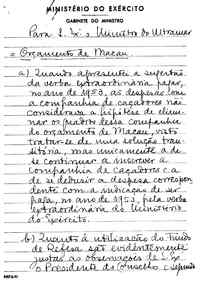 MINISTÉRIO DO EXÉRCITO
GABINETE DO MINISTRO
Para S. Ex.ª o Ministro do Ultramar
= Orçamento de Macau.
a) Quando apresentei a sugestão
da verba extraordinária pagar,
no ano de 1953, as despesas com
a companhia de caçadores não
considerava a hipótese de elimi-
nar os quadros dessa companhia
do orçamento de Macau, visto
tratar-se de uma solução tran-
sitória, mas unicamente a de
se continuar a inscrever a
companhia de caçadores e a
de se deduzir a despesa correspon-
dente com a indicação de ser
paga, no ano de 1953, pela verba
extraordinária do Ministério
do Exército.
b) Quanto à utilização do Fundo
de Defesa são evidentemente
justas as observações de S. Ex.ª
o Presidente do Conselho e